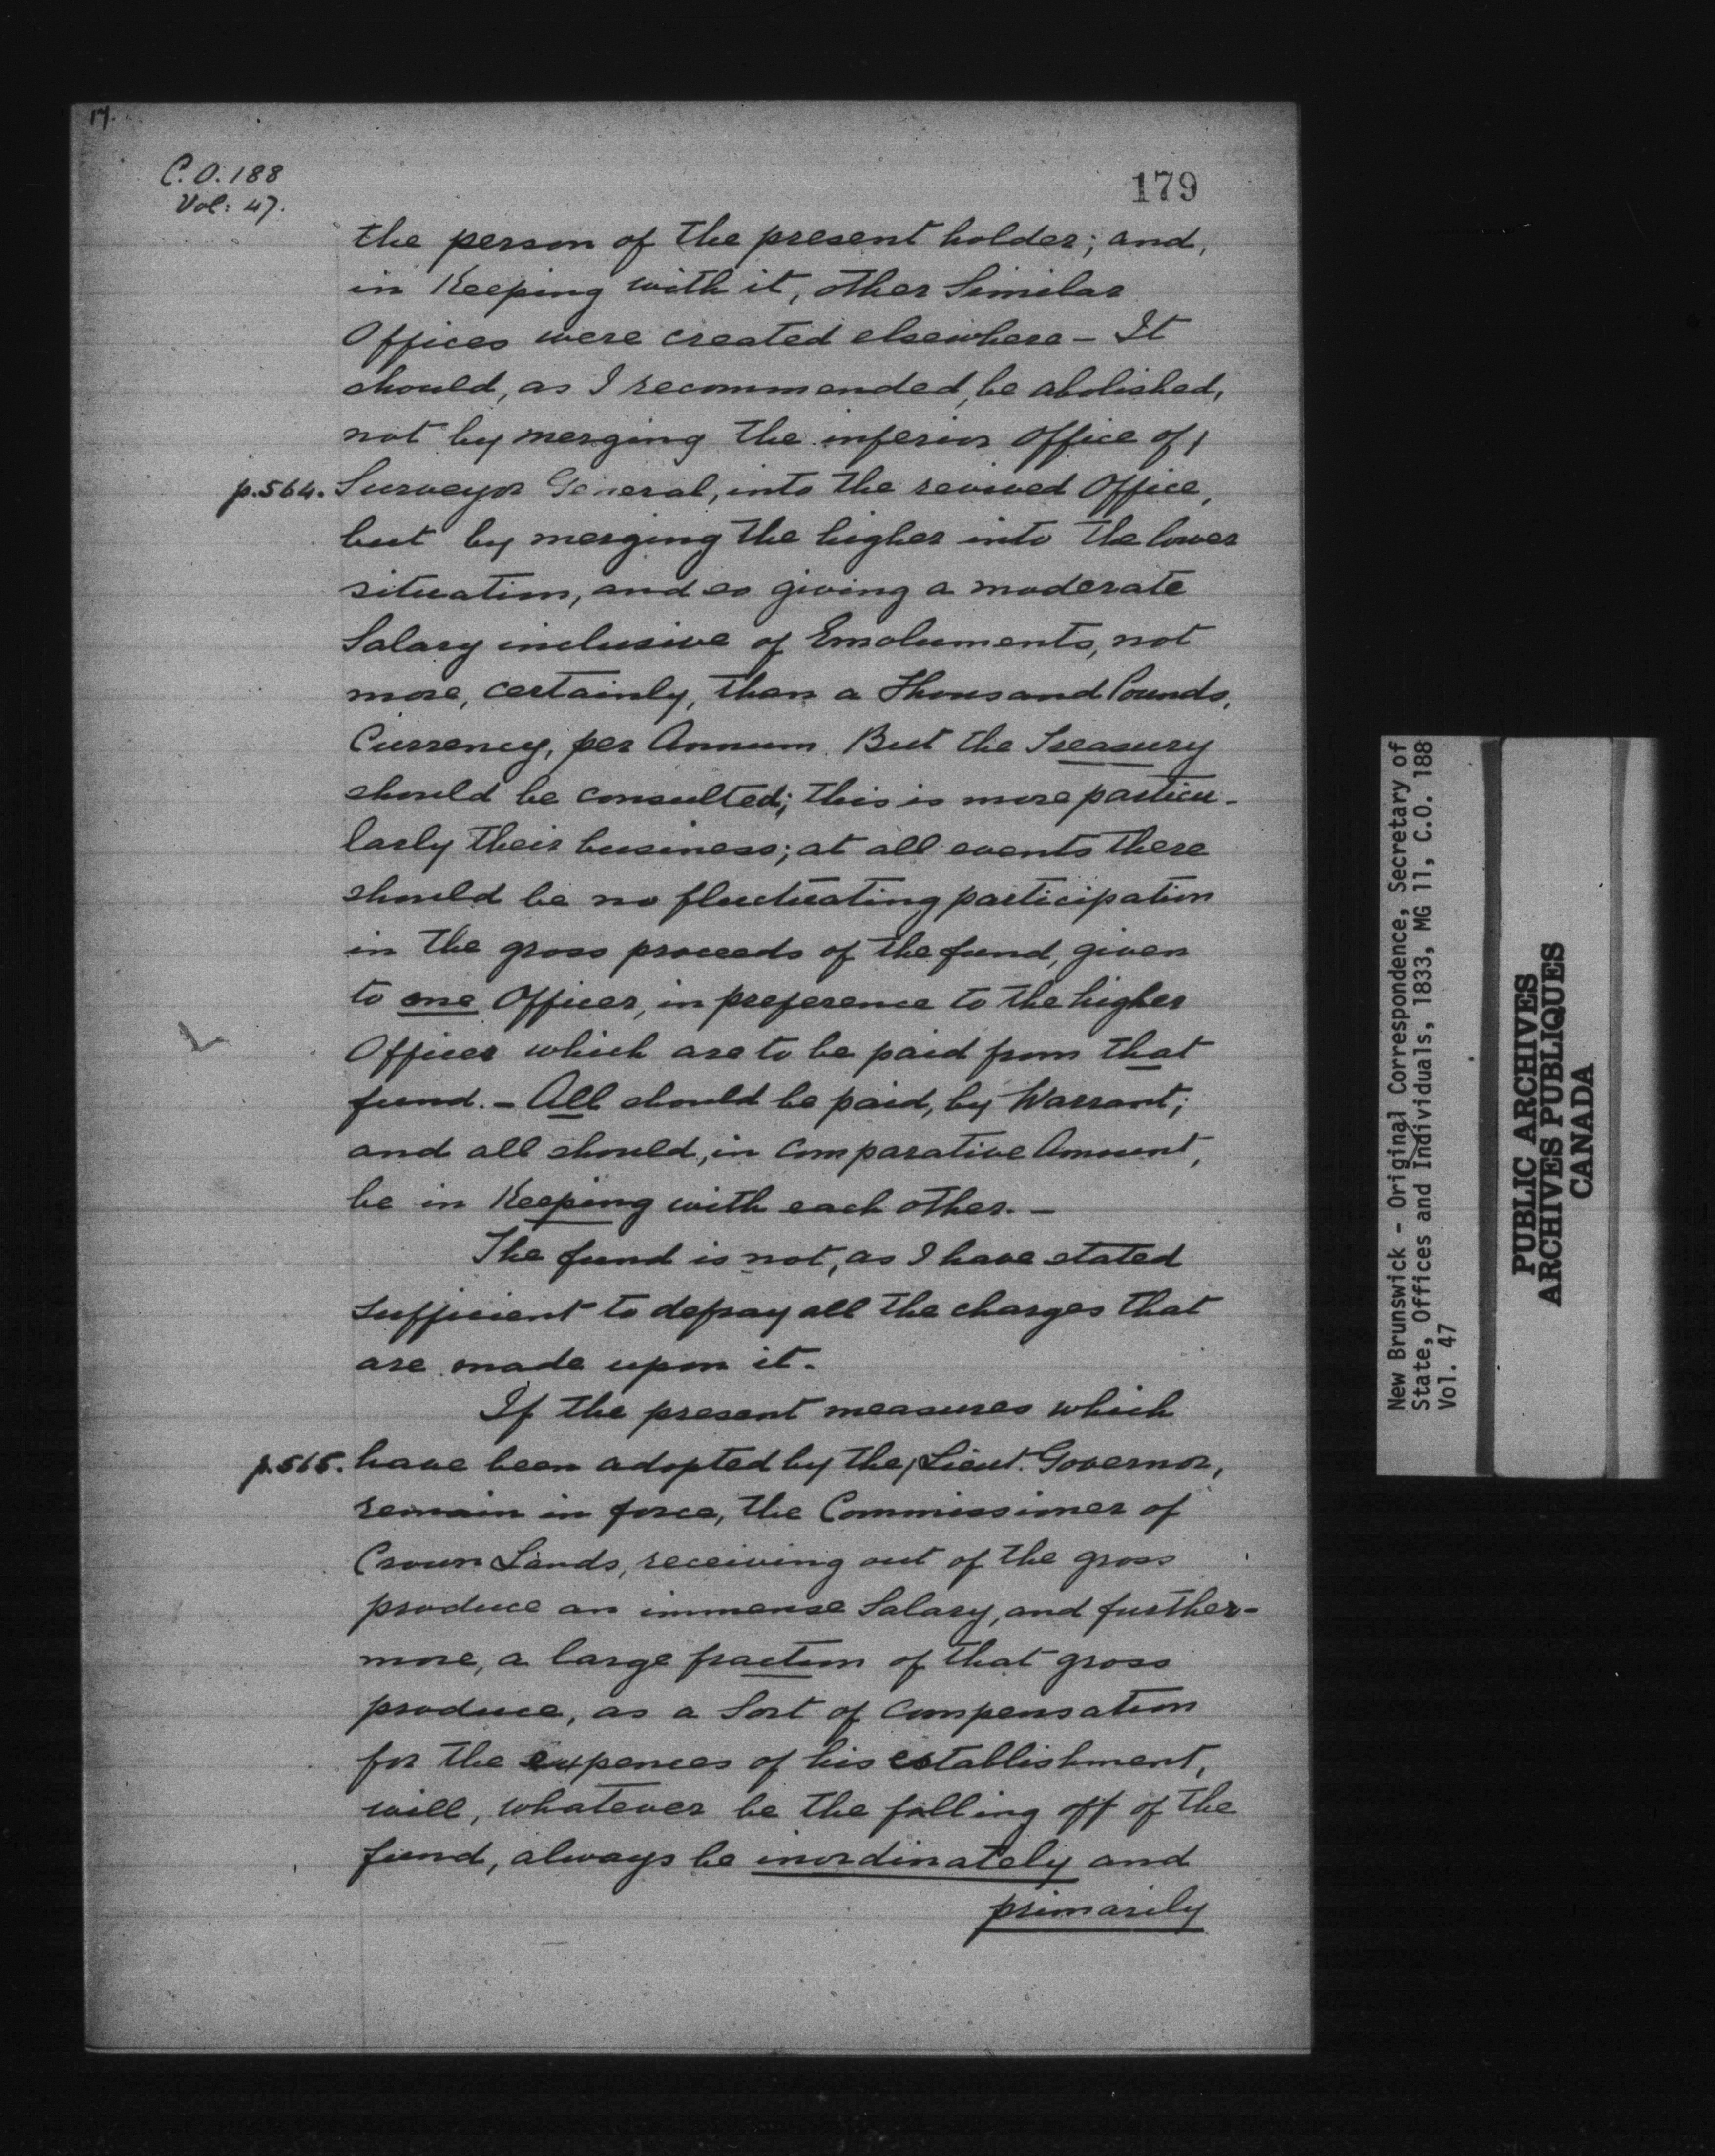 17.
C.O. 188
Vol: 47.
179
the person of the present holder; and,
in Keeping with it, other Similar
Offices were created elsewhere - It
should, as I recommended, be abolished,
not by merging the inferior office of /
p.564. Surveyor General, into the revived Office,
but by merging the higher into the lower
situation, and so giving a moderate
Salary inclusive of Emoluments, not
more, certainly, than a Thousand Pounds,
Currency, per Annum. But the Treasury
should be consulted; this is more particu-
larly their business; at all events there
should be no fluctuating participation
in the gross proceeds of the fund, given
to one Officer, in preference to the higher
Offices which are to be paid from that
fund. - All should be paid, by Warrant;
and all should, in Comparative Amount,
be in Keeping with each other. -
The fund is not, as I have stated
sufficient to defray all the charges that
are made upon it.
If the present measures which
p.565. have been adopted by the / Lieut. Governor,
remain in force, the Commissioner of
Crown Lands, receiving out of the gross
produce an immense Salary, and further-
more, a large fraction of that gross
produce, as a Sort of Compensation
for the expences of his establishment,
will, whatever be the falling off of the
fund, always be inordinately and
primarily
New Brunswick - Original Correspondence, Secretary of
State, Offices and Individuals, 1833, MG 11, C.O. 188
Vol. 47
PUBLIC ARCHIVES
ARCHIVES PUBLIQUES
CANADA